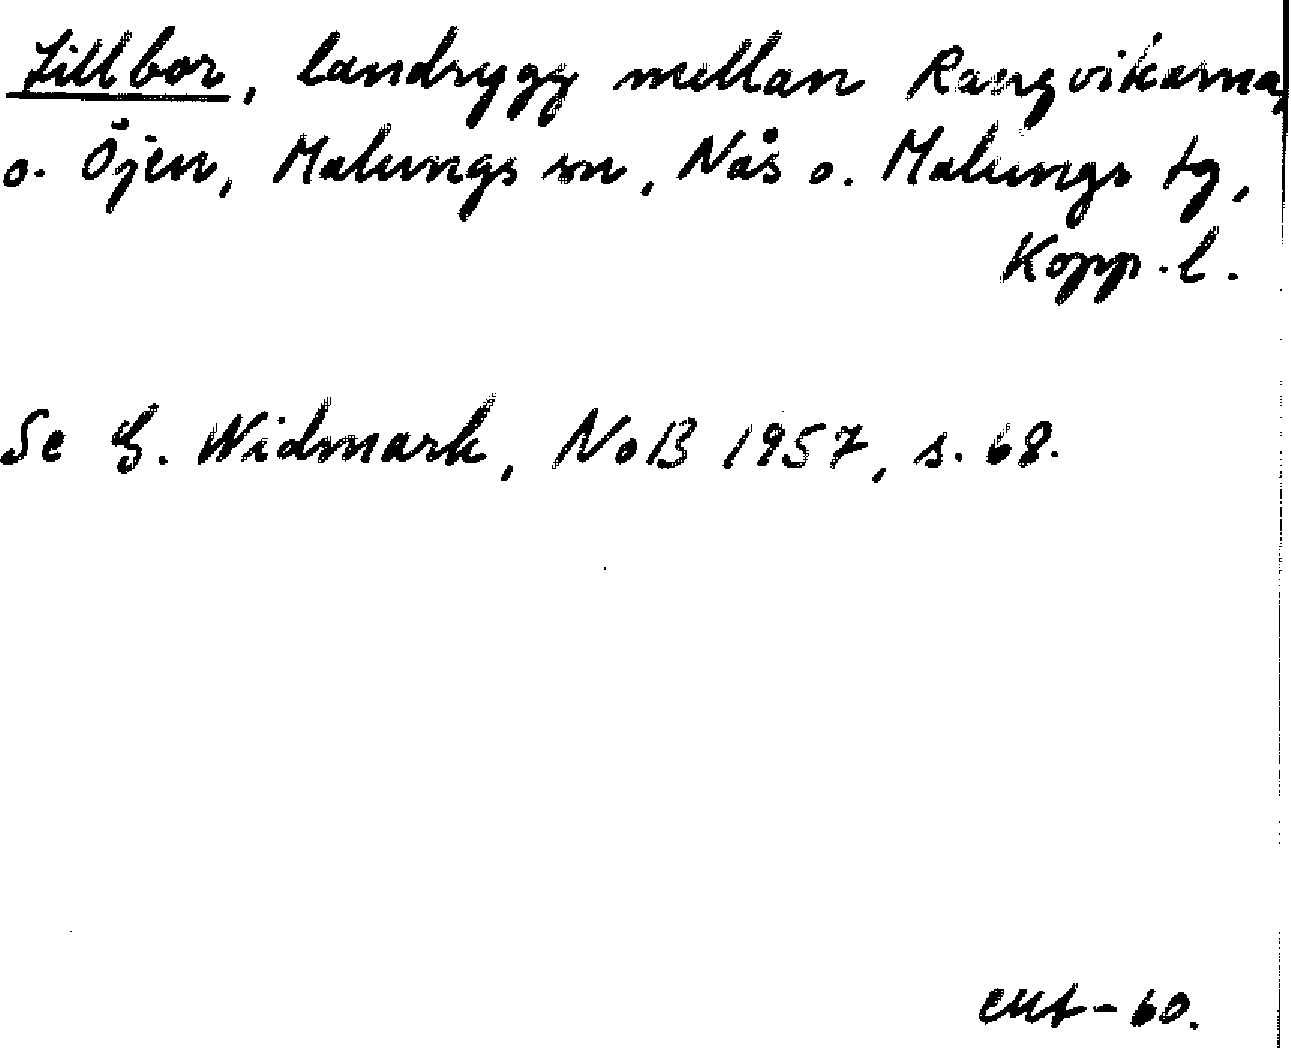 Lillbor, landrygg mellan Rangvikarna,
o. Öjen, Malungs sn, Nås o. Malungs tg,
Kopp. l.
Se G. Widmark, NoB 1957, s. 68.
- 60.